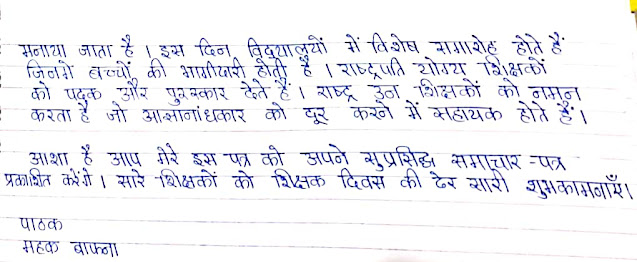 मनाया जाता है । इस दिन विद्यालयों में विशेष समारोह होते हैं
जिनमें बच्चों की भागीदारी होती है । राष्ट्रपति योग्य शिक्षकों
को पदक और पुरस्कार देते हैं । राष्ट्र उन शिक्षकों को नमन
करता है जो अज्ञानांधकार को दूर करने में सहायक होते हैं ।
आशा है आप मेरे इस पत्र को अपने सुप्रसिद्ध समाचार -पत्र
प्रकाशित करेंगे । सारे शिक्षकों को शिक्षक दिवस की ढेर सारी शुभकामनाएँ ।
पाठक
महक बाफना